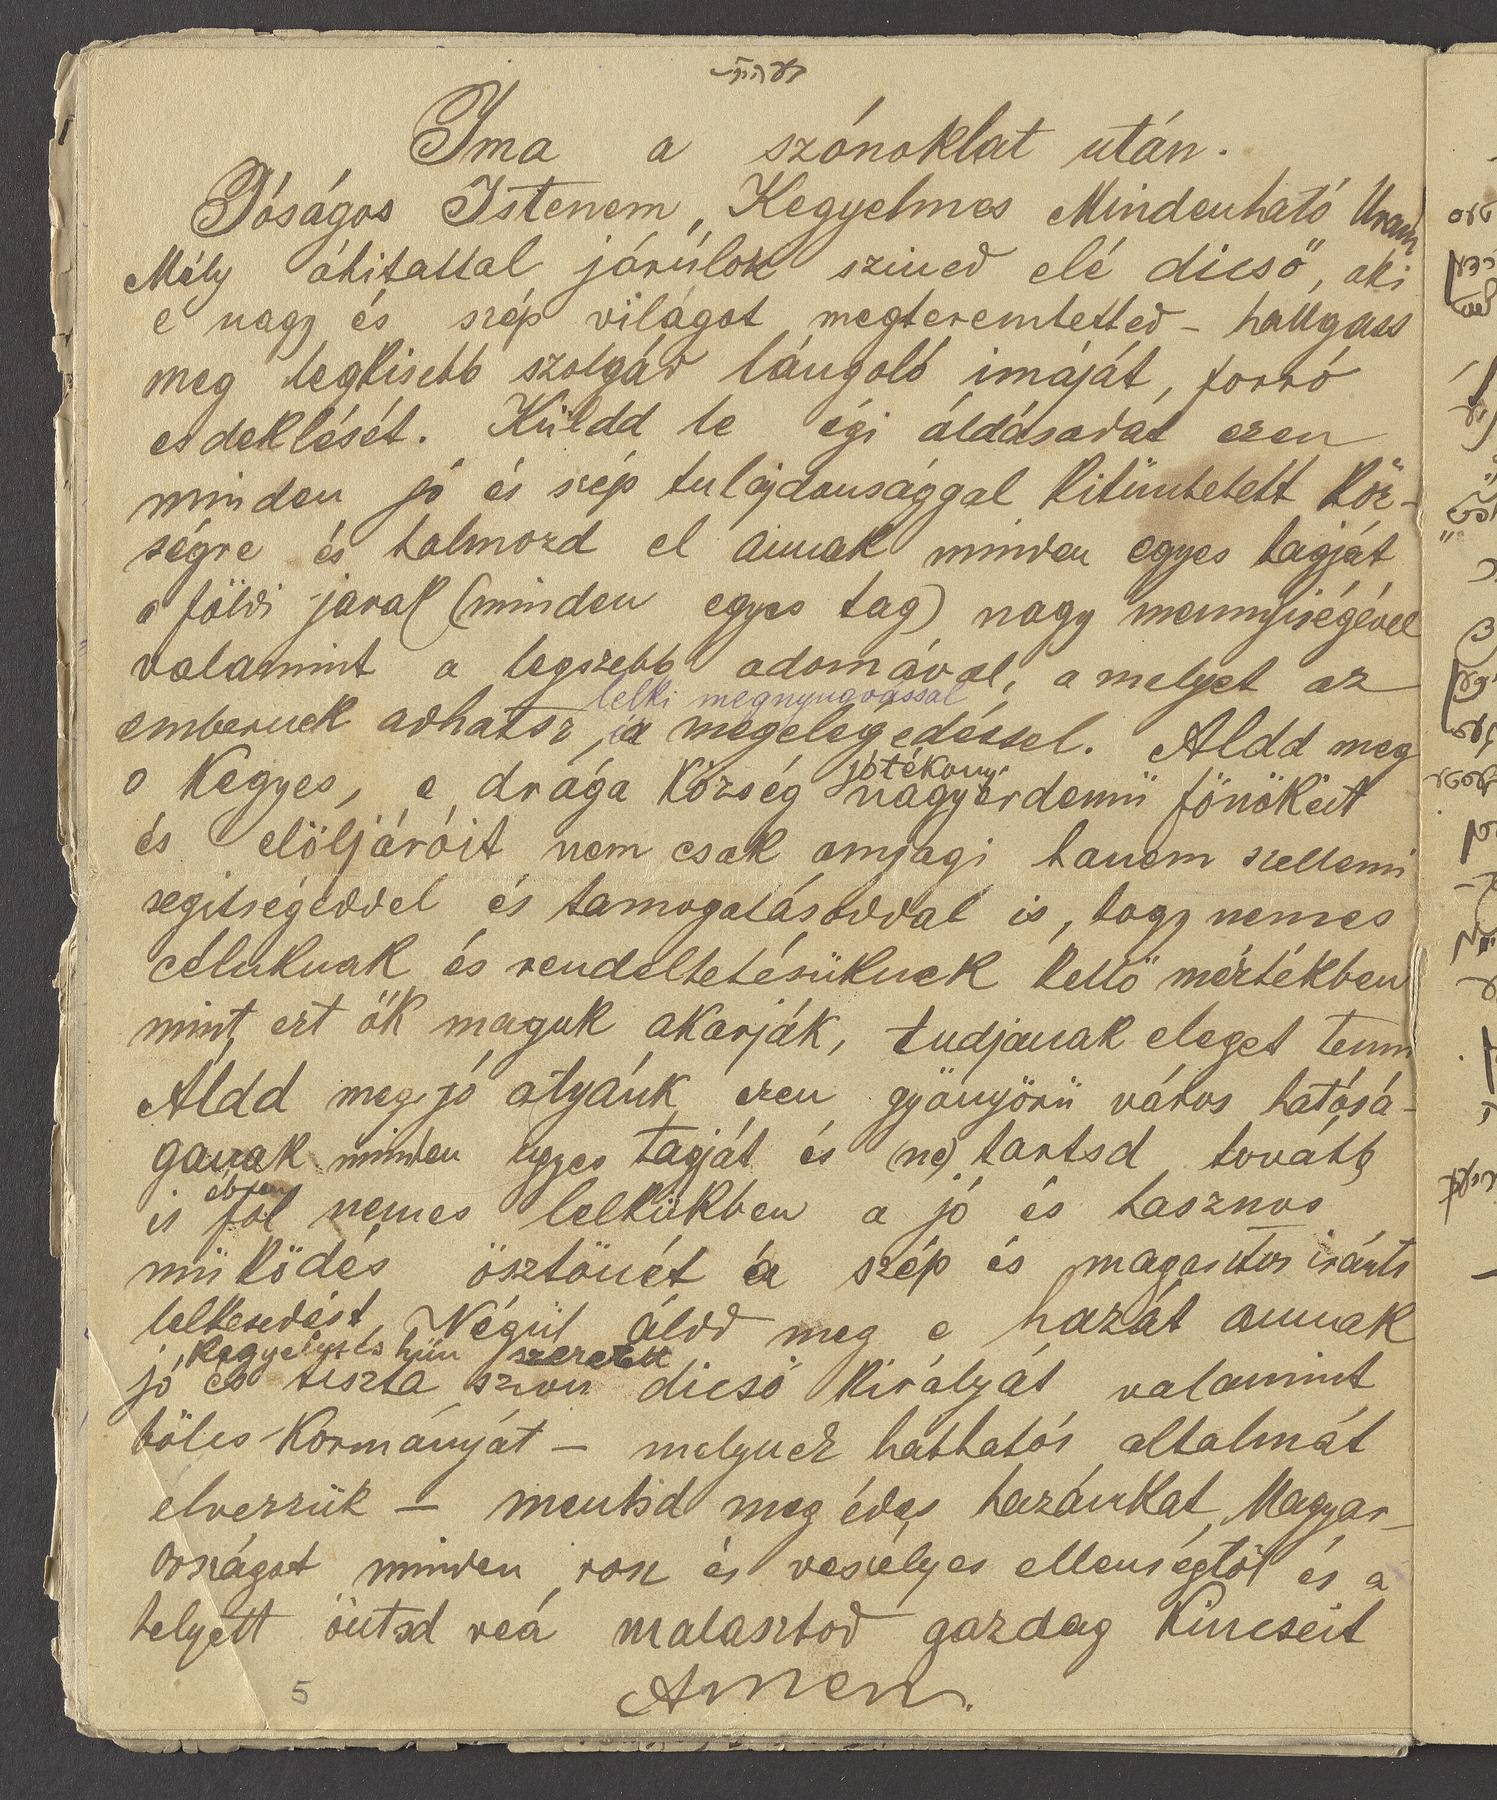 Ima a szónoklat után.
Jóságos Istenem, Kegyelmes Mindenható Uram
Mély áhitattal járúlok szined elé dicső, aki
e nagy és szép világot megteremtetted – hallgass
meg legkisebb szolgád lángoló imáját, forró
esdeklését. Küldd le égi áldásodat ezen
minden jó és szép tulajdonsággal kitüntetett köz-
ségre és halmozd el annak minden egyes tagját
a földi javak (minden egyes tag) nagy mennyiségével
valamint a legszebb adomával, amelyet az
lelki megnyugvással
embernek adhatsz, a megelegedéssel. Aldd meg
o Kegyes, e drága Község nagyérdemü fönökeit
jótékony
és elöljáróit nem csak anyagi hanem szellemi
segitségeddel és tamogatásoddal is, hogy nemes
céluknak és rendeltetésüknek kellő mértékben
mint ezt ők maguk akarják, tudjanak eleget tenni
Aldd meg jó atyánk ezen gyönyörü város hatósá-
ganak minden egyes tagját és (ne) tartsd tovább
ébren
is föl nemes lelkükben a jó és hasznos
müködés ösztönét a szép és magasztos iránti
lelkesedést. Végül áldd meg e hazát annak
Kegyelyes és hün szeretett
jó és tiszta szivü dicső Királyát valamint
bölcs Kormányát – melynek hathatós altalmát
élvezzük – mentsd meg édes hazánkat Magyar-
országot minden rosz és veszélyes ellenségtől és a
helyett öntsd reá malasztod gazdag Kincseit
Amen.
5